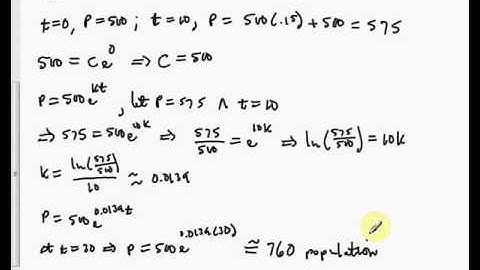 t=0, P=500 ; t=10, P= 500(.15)+500=575
500 = Ce^0 ⇒ C=500
P=500e^kt , let P=575 ∧ t=10
⇒ 575=500e^10k ⇒ 575/500 = e^10k ⇒ ln(575/500)=10k
k = ln(575/500)/10 ≈ 0.0139
P=500e^0.0139t
at t=30 ⇒ P=500e^0.0139(30) ≅ 760 population